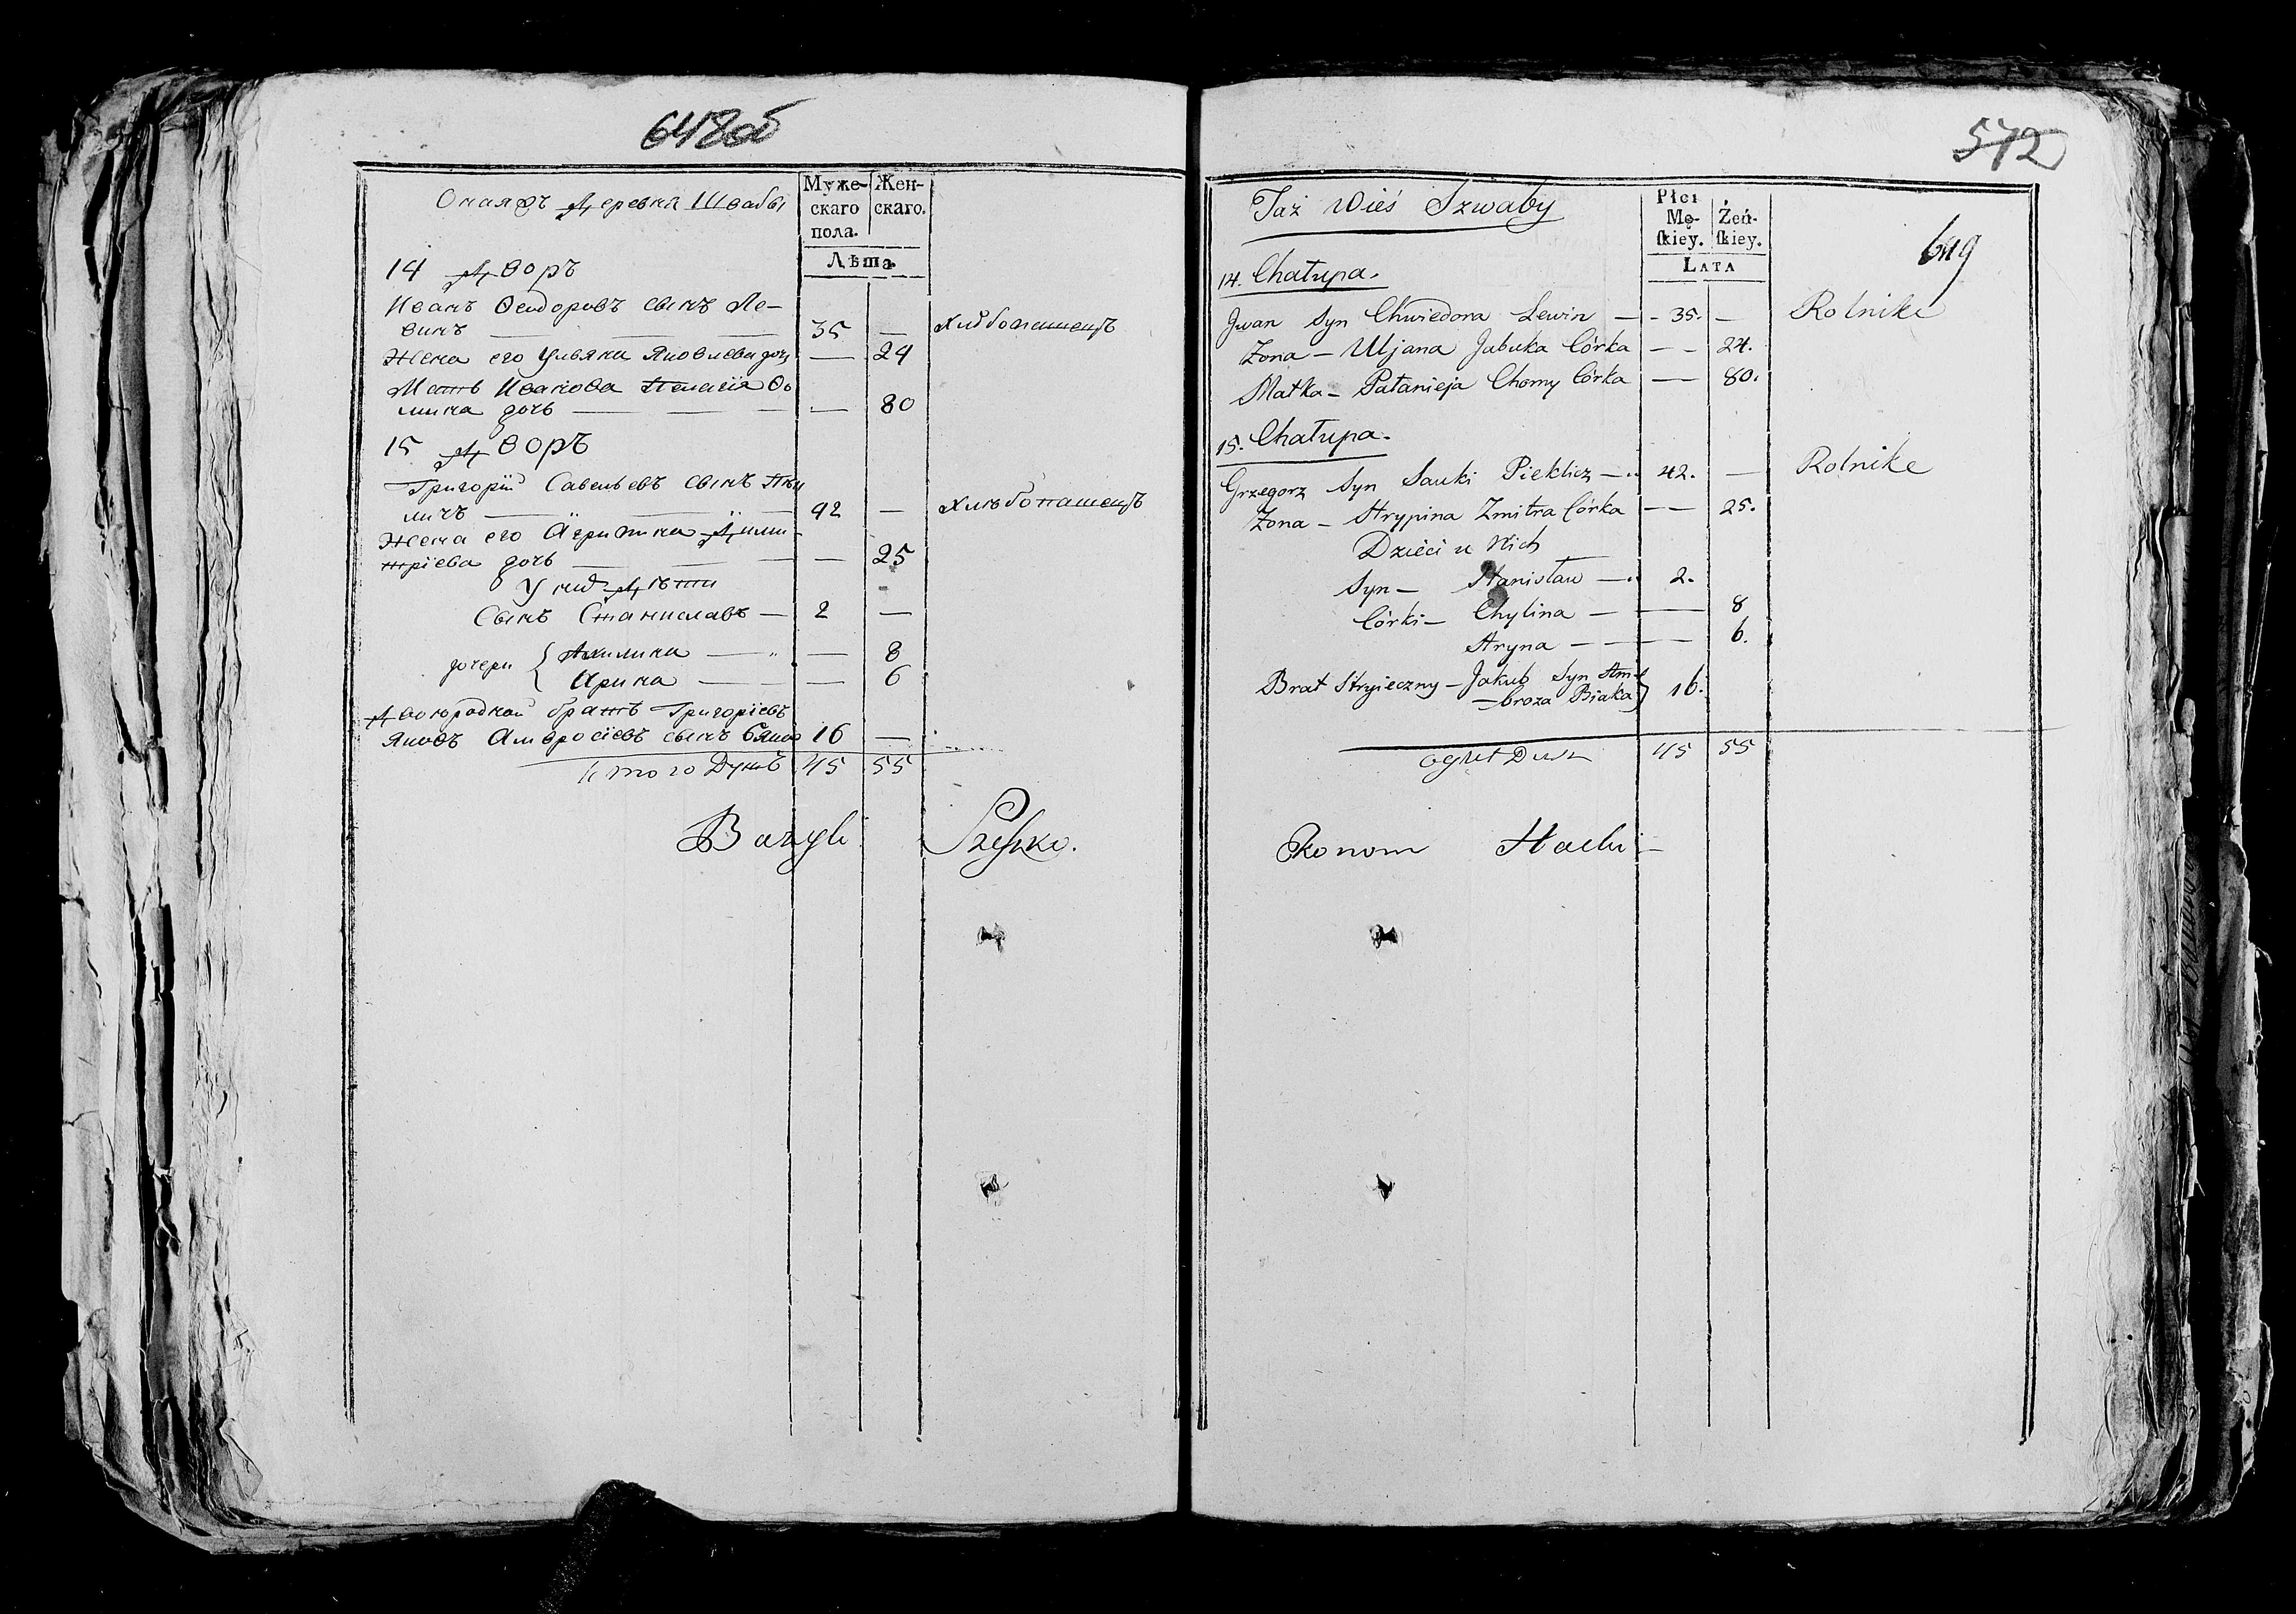 648об
Оная жъ Деревня Швабы
Муже- Жен-
скаго скаго.
пола.
Лѣта
14 Дворъ
Иванъ Ѳеодоровъ сынъ Ле-
винъ 35 — Хлѣбопашецъ
Жена его Ульяна Яковлева дочь — 24
Мать Иванова Пелагія Ѳо
мина дочь — 80
15 Дворъ
Григорій Савельевъ сынъ Пек
личъ 42 — Хлѣбопашецъ
Жена его Агрипина Дими-
тріева дочь — 25
У нихъ Дѣти
Сынъ Станиславъ — 2 —
дочери { Акилина — — 8
Ирина — — 6
Двоюродной братъ Григоріевъ
Яковъ Амвросіевъ сынъ Бяка 16 —
Итого Душъ 45 55
Bazyli
572
649
Taż Wieś Szwaby
Płci
Mę- Żeń-
ſkiey. ſkiey.
LATA
14. Chałupa.
Jwan Syn Chwiedora Lewin — 35. — Rolnik
Żona — Uljana Jakuba Córka — 24.
Matka — Pałanieja Chomy Córka — 80.
15. Chałupa.
Grzegorz Syn Sauki Pieklicz — 42. — Rolnik
Żona — Hrypina Zmitra Córka — 25.
Dzieći u Nich
Syn — Stanisław — 2.
Córki — Chylina — — 8
Aryna — — 6.
Brat Stryieczny — Jakub Syn Am-
—broza Biaka } 16.
Duсz 45 55
Ekonom